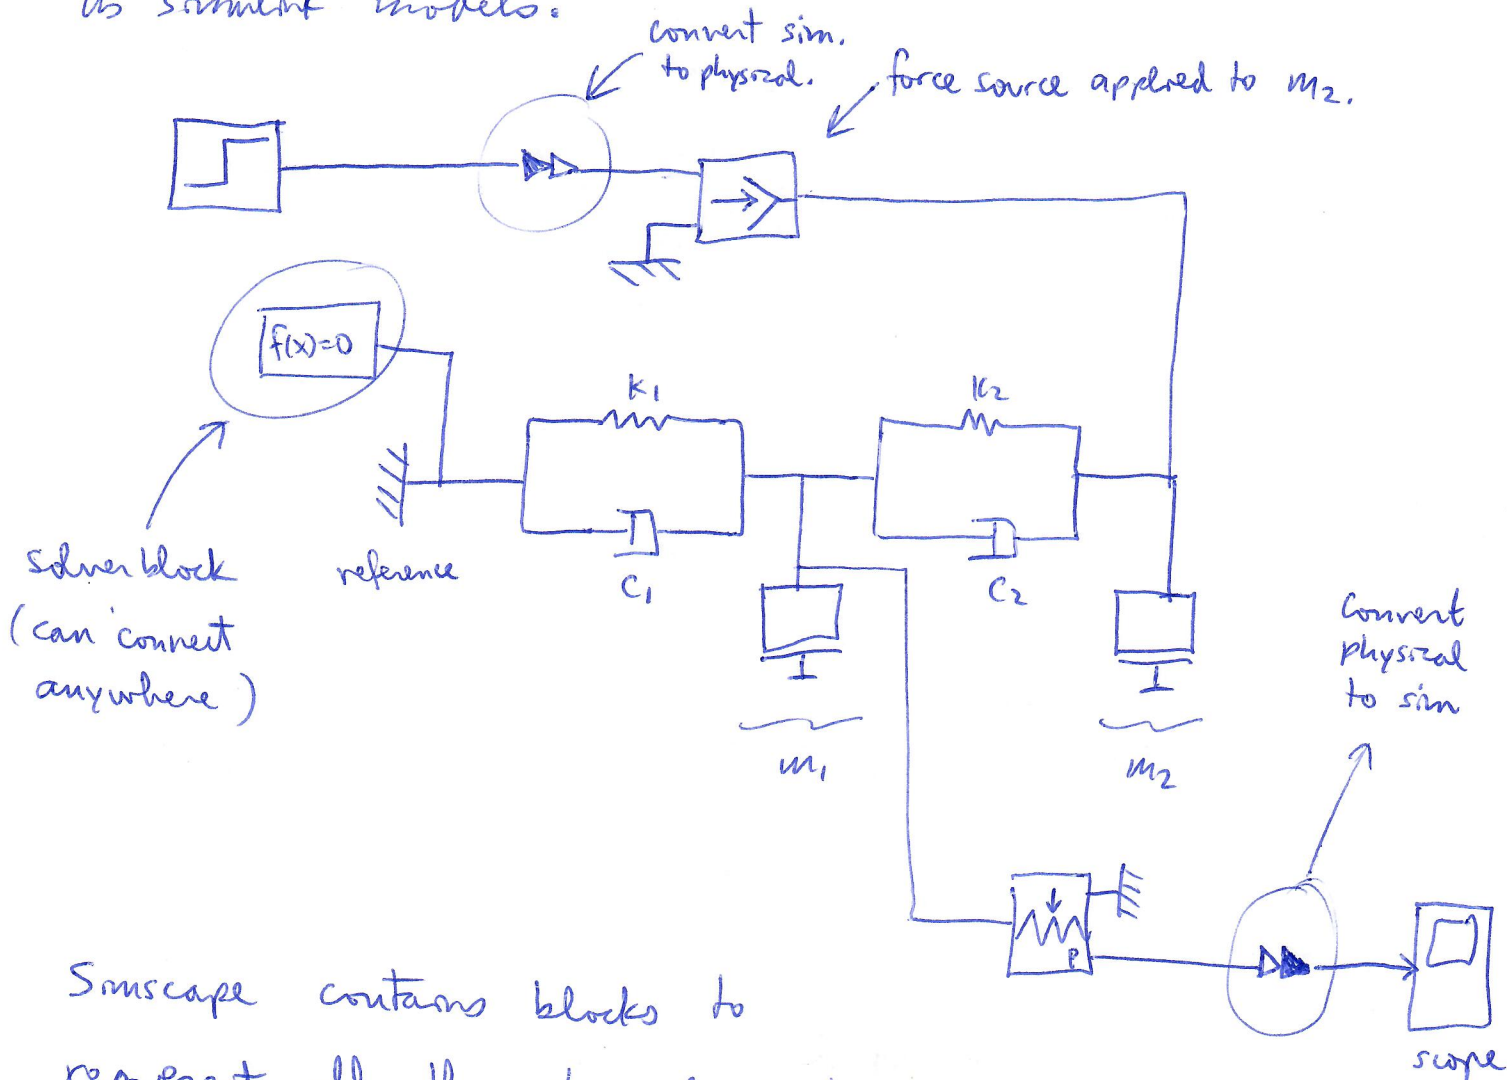 as simulink models.
convert sim.
to physical.
force source applied to m2.
f(x)=0
K1
K2
solver block
(can connect
anywhere)
reference
C1
C2
m1
m2
Convert
physical
to sim
P
scope
Simscape contains blocks to